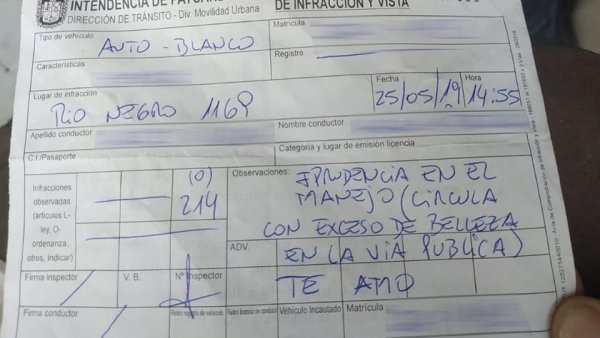 INTENDENCIA DE
DIRECCIÓN DE TRÁNSITO - Div. Movilidad Urbana
DE INFRACCIÓN Y VISTA
Tipo de vehículo
AUTO - BLANCO
Matrícula
Registro
Características
Lugar de infracción
RIO NEGRO 1169
Fecha
25/05/19
Hora
14:55
Apellido conductor
Nombre conductor
C.I./Pasaporte
Categoría y lugar de emisión licencia
Infracciones
observadas
(artículos L-
ley, O-
ordenanza,
otros, indicar)
(O)
214
Observaciones:
IPRUDENCIA EN EL
MANEJO (CIRCULA
CON EXCESO DE BELLEZA
ADV.
EN LA VIA PUBLICA)
TE AMO
Firma inspector
V. B.
Nº Inspector
Firma conductor
Retiro registro de vehículo
Retiro licencia de conducir
Vehículo incautado
Matrícula